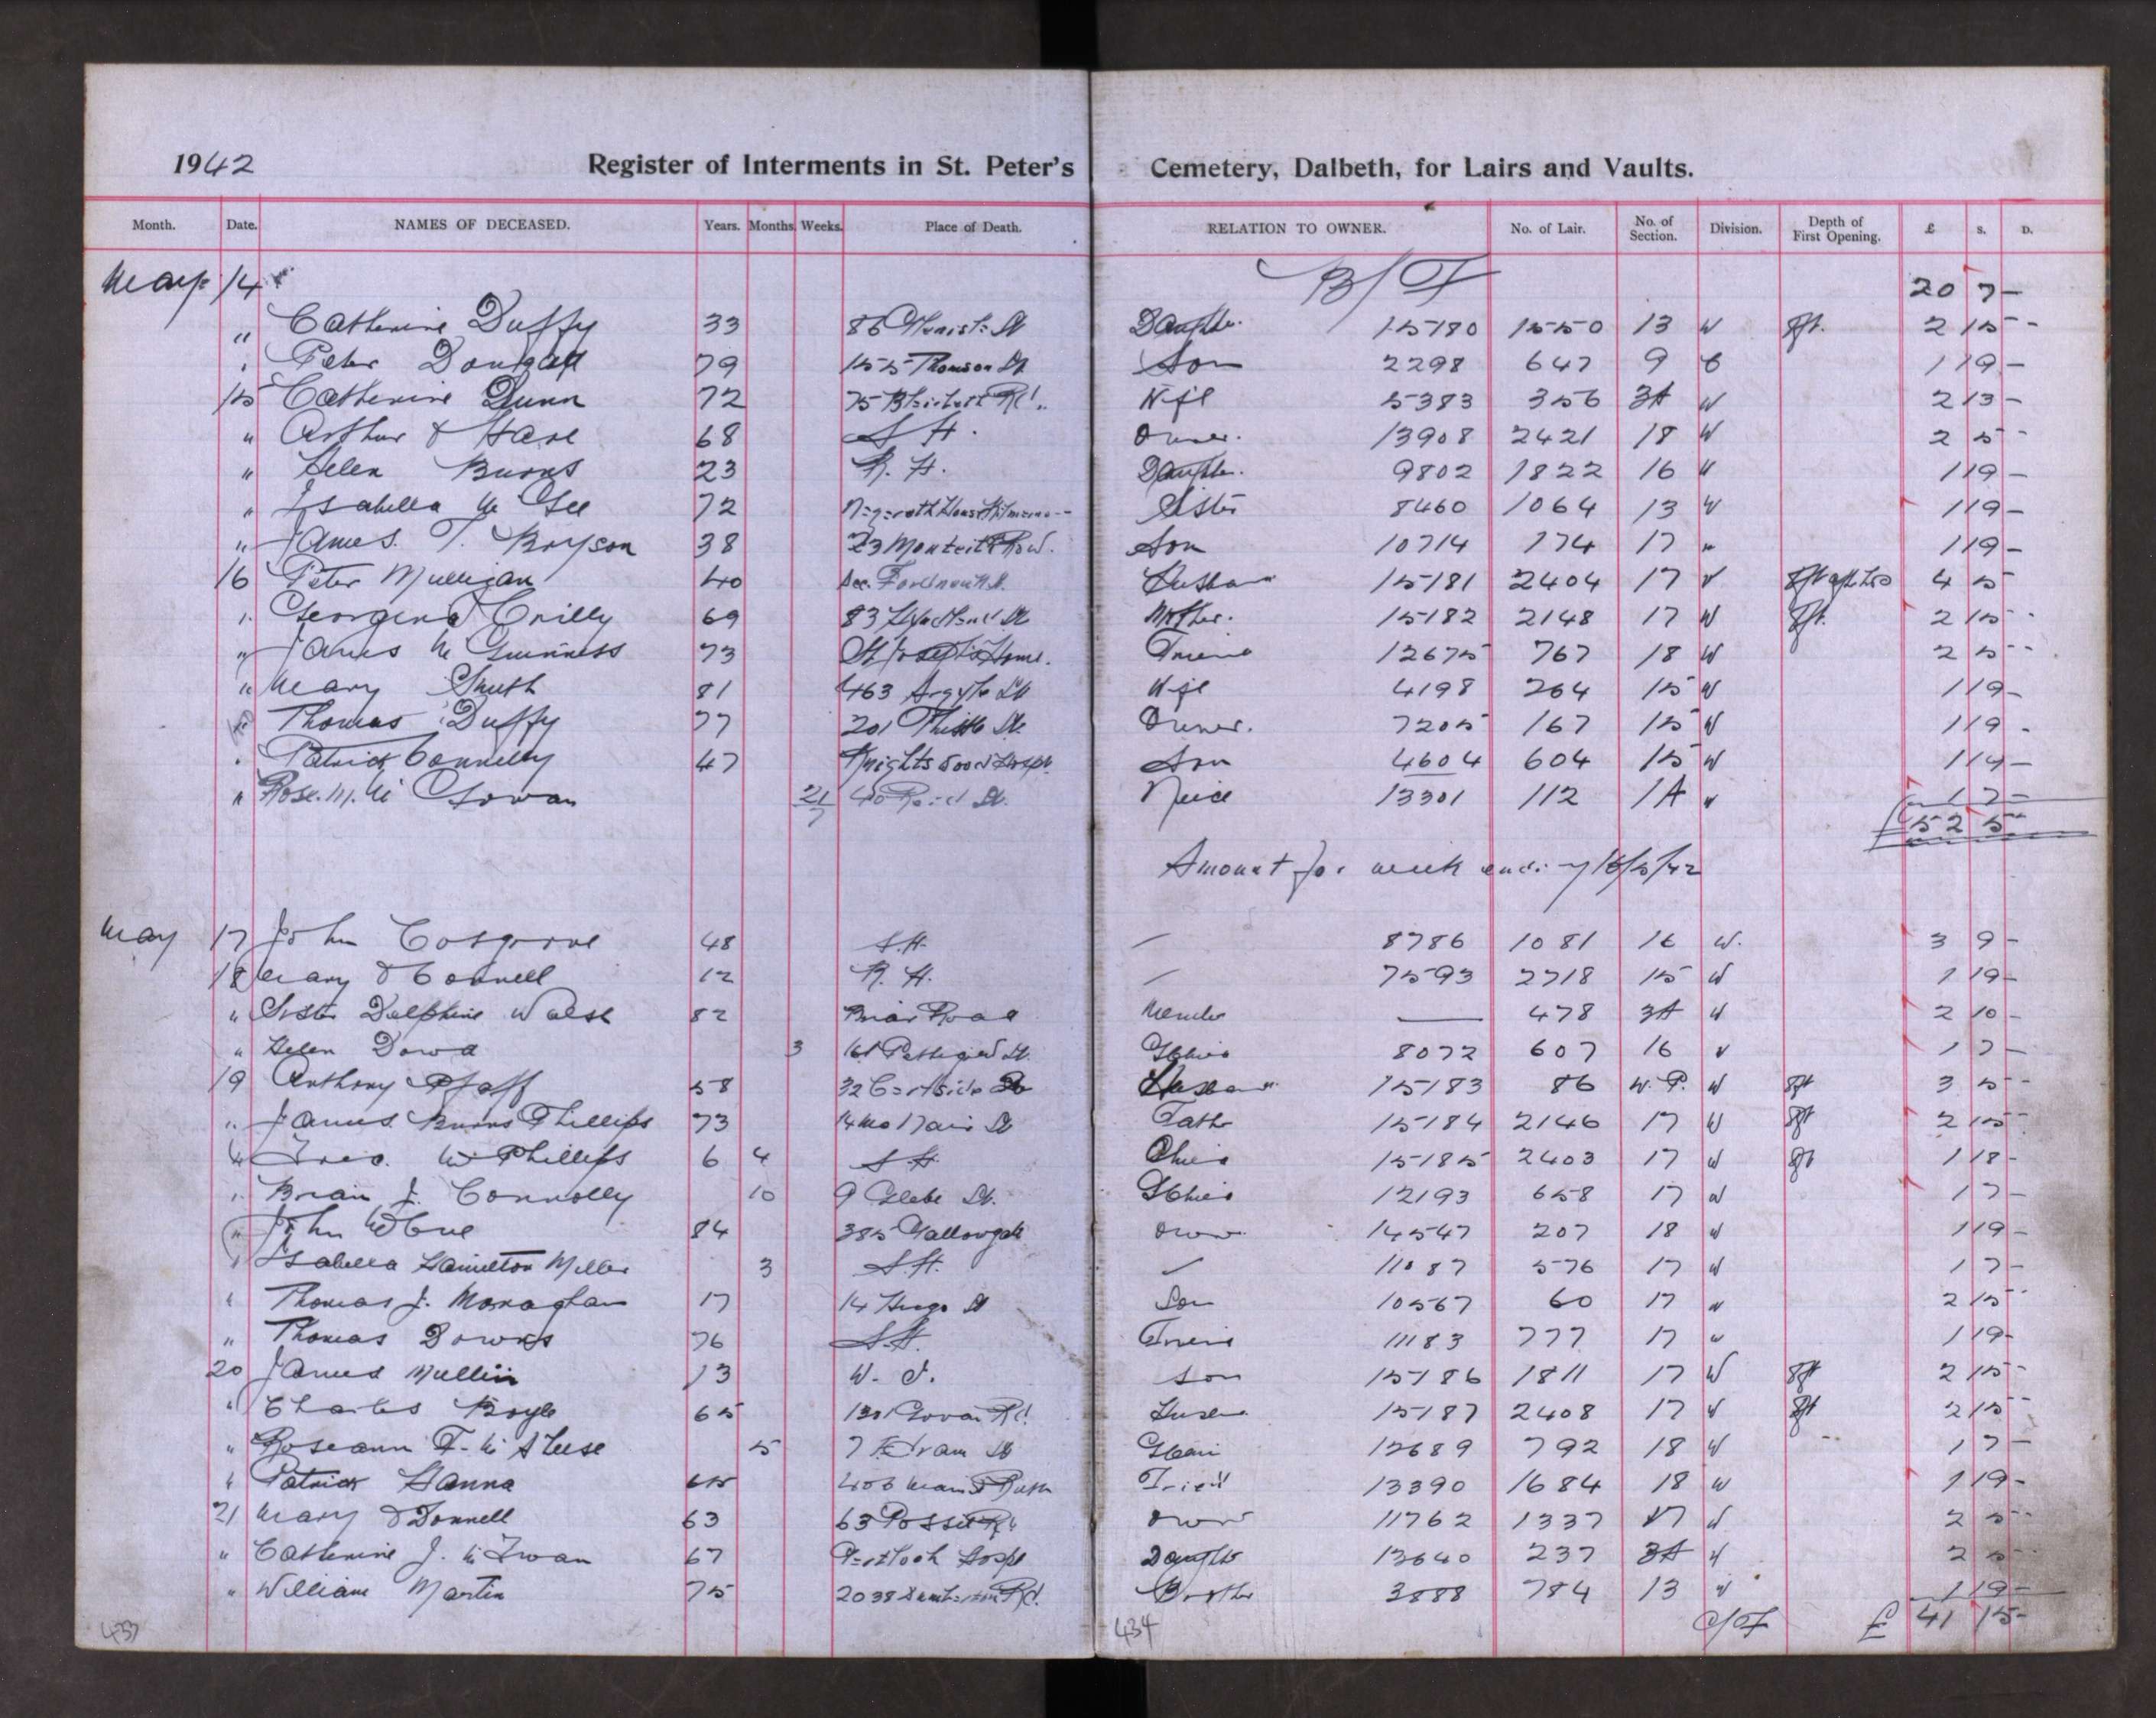 1942 Register of Interments in St. Peter's Cemetery, Dalbeth, for Lairs and Vaults.
Month. Date. NAMES OF DECEASED. Years. Months. Weeks. Place of Death. RELATION TO OWNER. No. of Lair. No. of Section. Division. Depth of First Opening. £ s. D.
May 14 B/F 20 7 -
" Catherine Duffy 33 St Daughter 15180 1550 13 W 8ft. 2 15 -
" Peter Dougall 79 155 Thomson St Son 2298 647 9 C 1 19 -
15 Catherine Dunn 72 75 Rd. Wife 5383 356 3A W 2 13 -
" Arthur O'Hare 68 S.H. Owner. 13908 2421 18 W 2 5 -
" Helen Burns 23 R.H. Daughter. 9802 1822 16 " 1 19 -
" Isabella Mc Gee 72 House Sister 8460 1064 13 W 1 19 -
" James. T. Bryson 38 23 Monteith Row. Son 10714 174 17 " 1 19 -
16 Peter Mulligan 40 Husband 15181 2404 17 W 4 5
" Georgina Crilly 69 83 St Mother. 15182 2148 17 W 8ft. 2 15 -
" James Mc Guinness 73 St Joseph's Home. Friend 12675 767 18 W 2 5 -
" Mary Smith 81 463 Argyle St Wife 4198 264 15 W 1 19 -
" Thomas Duffy 77 201 Thistle St. Owner. 7205 167 15 W 1 19 -
" Patrick Connelly 47 Knightswood Hosp. Son 4604 604 15 W 1 14 -
" Rose. M. Mc Gowan 2/7 40 Reid St. Neice 13301 112 1A " 1 7 -
£52 5 -
Amount for week ending 16/5/42
May 17 John Cosgrove 48 S.H. - 8786 1081 16 W. 3 9 -
18 Mary O'Connell 12 R.H. - 7593 2718 15 W 1 19 -
" Sister Delphine Walsh 82 Briar Road Member — 478 3A W 2 10 -
" Helen Dowd 3 161 St. GChild 8072 607 16 " 1 7 -
19 Anthony Pfaff 58 32 Husband 15183 86 W.P. W 8ft 3 5 -
" James Burns Phillips 73 14 St Father 15184 2146 17 W 8ft 2 15 -
" Mc Phillips 6 4 S.H. Child 15185 2403 17 W 8ft 1 18 -
" Brian J. Connolly 10 9 Glebe St. GChild 12193 658 17 W 1 7 -
" John McCue 84 385 Gallowgate Owner 14547 207 18 W 1 19 -
" Isabella Hamilton Miller 3 S.H. - 11087 576 17 W 1 7 -
" Thomas J. Monaghan 17 14 Hugo St Son 10567 60 17 " 2 15 -
" Thomas Downs 76 S.H. Friend 11183 777 17 " 1 19 -
20 James Mullin 13 W. I. Son 15186 1811 17 W 8ft 2 15 -
" Charles Boyle 65 1301 Govan Rd. Husband 15187 2408 17 W 8ft 2 15 -
" Roseann F. Mc Aleese 5 7 St 12689 792 18 W 1 7 -
" Patrick Hanna 65 406 Main St Ruth Friend 13390 1684 18 W 1 19 -
21 Mary O'Donnell 63 63 Possil Rd Owner 11762 1337 17 W 2 5 -
" Catherine J. Mc Ewan 67 Gartloch Hosp Daughter 13640 237 3A W 2 5 -
" William Martin 75 2038 Dumbarton Rd. Brother 3888 784 13 W 1 19 -
C/F £ 41 15 -
433
434